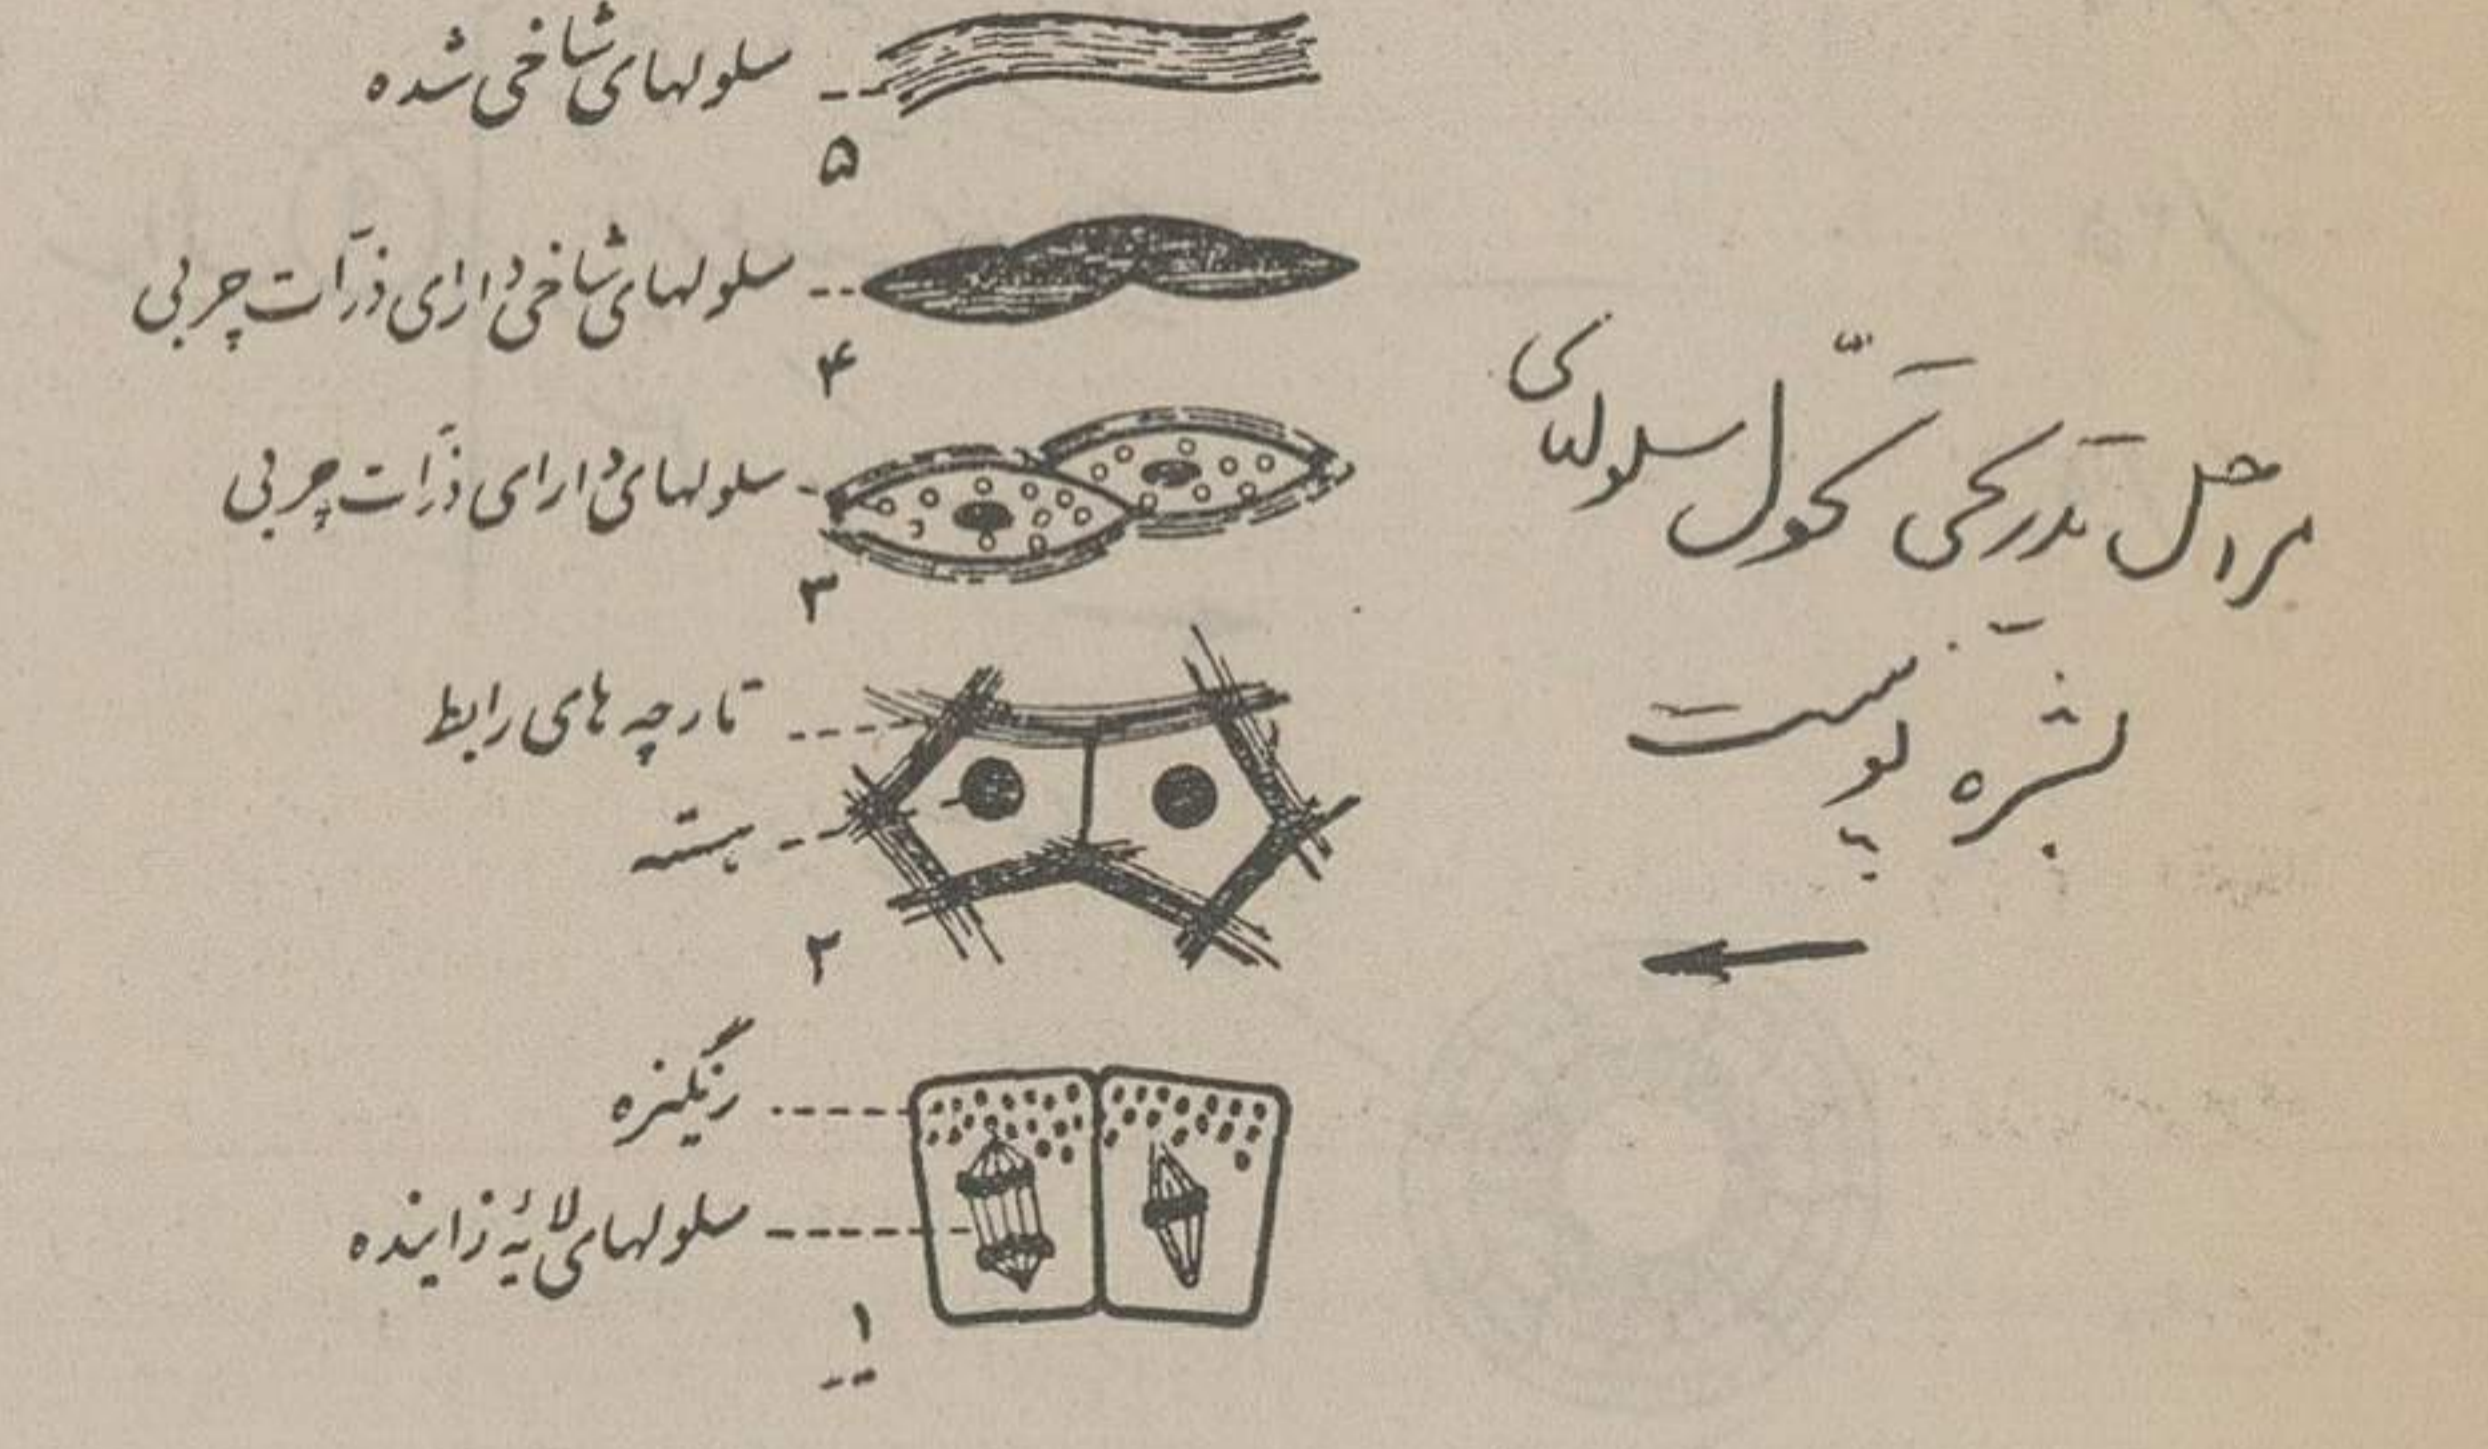 سلولهای شاخی شده
۵
سلولهای شاخی دارای ذرّات چربی
۴
سلولهای دارای ذرّات چربی
۳
تارچه های رابط
هسته
۲
رنگیزه
سلولهای لایهٔ زاینده
۱
مراحل تدریجی تحوّل سلولهای
بشره پوست